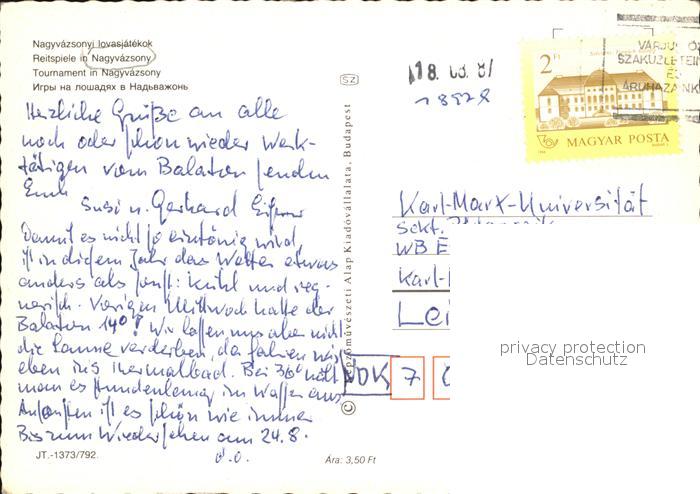 Nagyvázsonyi lovasjátékok
Reitspiele in Nagyvázsony
Tournament in Nagyvázsony
Игры на лошадях в Надьважонь
Herzliche Grüße an alle
noch oder schon wieder Werk-
tätigen vom Balaton senden
Euch
Susi u. Gerhard
Damit es nicht so eintönig wird,
ist in diesem Jahr das Wetter etwas
anders als sonst: kühl und reg-
nerisch. Vorigen Mittwoch hatte der
Balaton 14°! Wir lassen uns aber nicht
die Laune verderben, da fahren wir
eben ins Thermalbad. Bei 36° hält
man es stundenlang im Wasser aus
Ansonsten ist es schön wie immer
Bis zum Wiedersehen am 24.8.
d.o.
JT.-1373/792.
Ára: 3,50 Ft
SZ
© Képzőművészeti Alap Kiadóvállalata, Budapest
18. 08. 87
18928
2 Ft
MAGYAR POSTA
VÁRJUK ÖN
SZAKÜZLETEIN
ÉS
ÁRUHÁZAINK
Karl-Marx-Universität
Sekt.
WB E
Karl-
Lei
DDK 7 0
privacy protection
Datenschutz